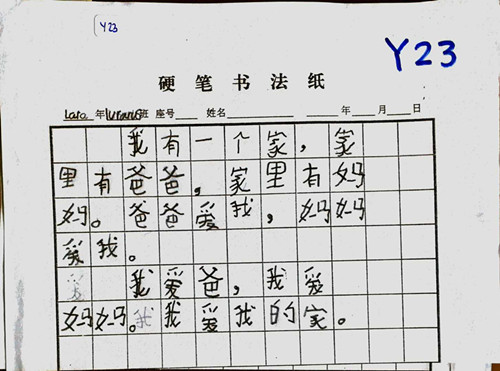 Y23
Y23
硬笔书法纸
年 班 座号 姓名 年 月 日
我有一个家，家
里有爸爸，家里有妈
妈。爸爸爱我，妈妈
爱我。
爱我爱爸，我爱
妈妈。我我爱我的家。